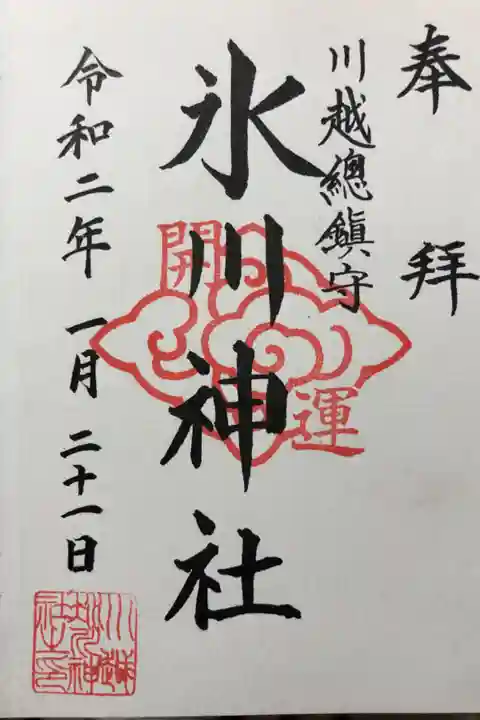 奉拝
川越總鎮守
氷川神社
開運
令和二年一月二十一日